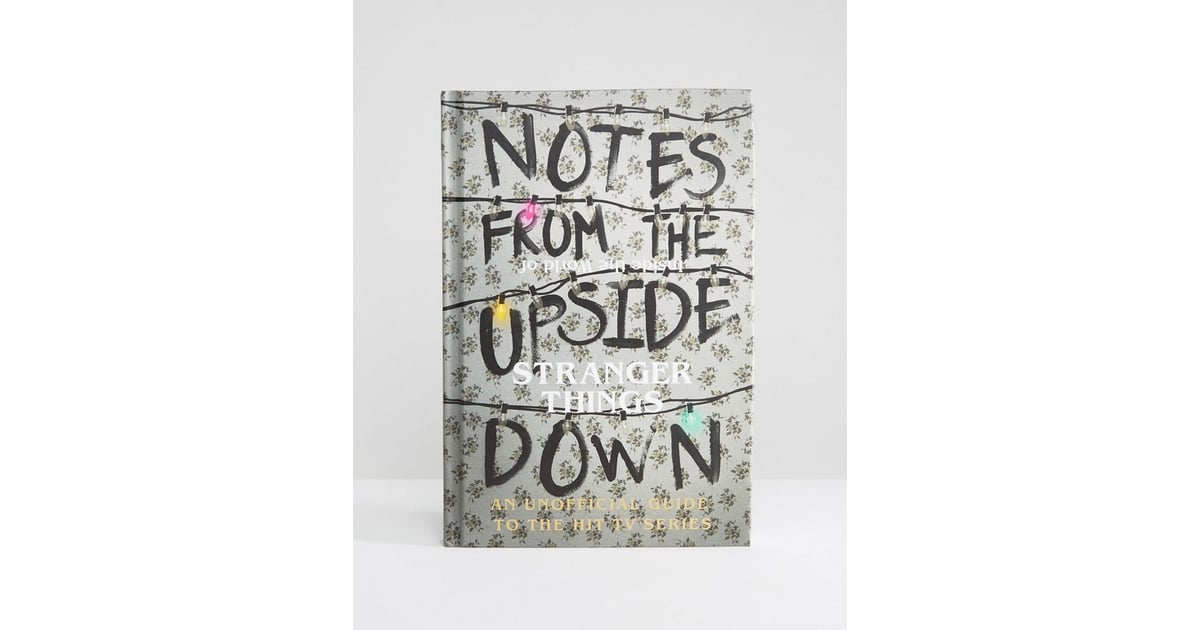 NOTES
FROM THE
Inside the World of
UPSIDE
STRANGER
THINGS
DOWN
AN UNOFFICIAL GUIDE
TO THE HIT TV SERIES